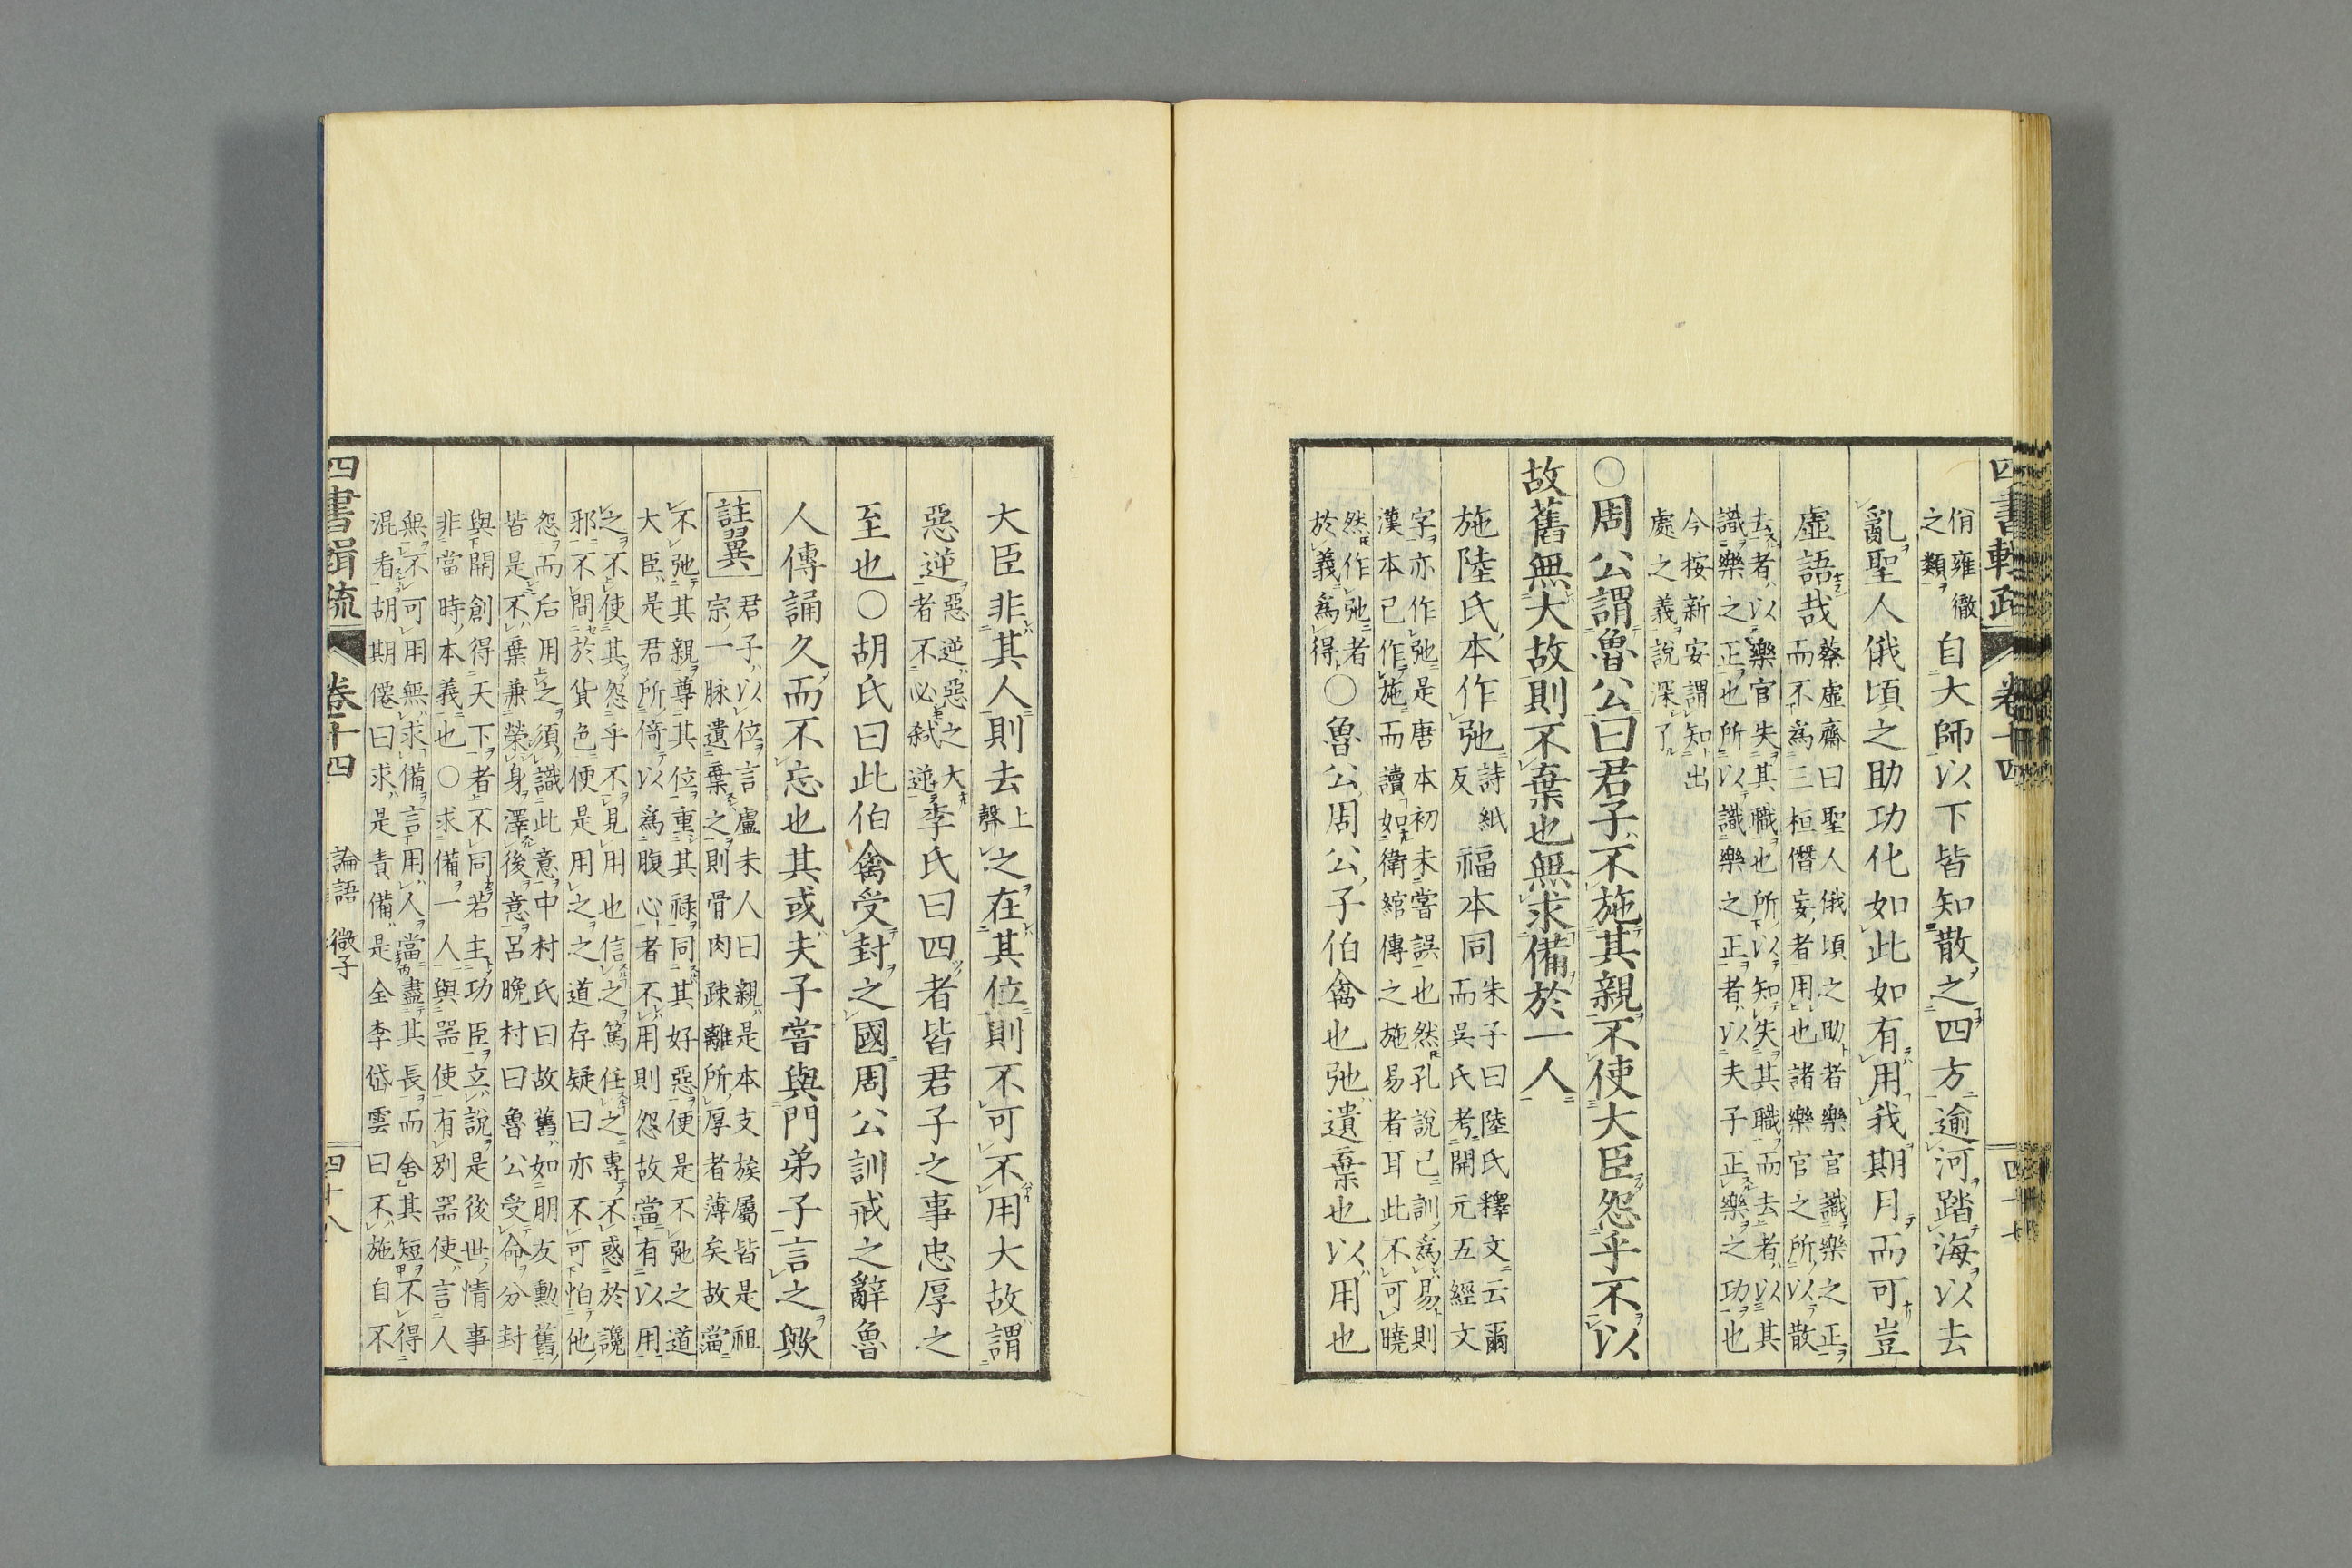 四書輯疏 卷十四 四十七
佾雍徹
之類 自大師以下皆知散之四方逾河蹈海以去
亂聖人俄頃之助功化如此如有用我期月而可豈
虛語哉 蔡虛齋曰聖人俄頃之助者樂官識樂之正
而不為三桓僭妄者用也諸樂官之所以散
去者以樂官失其職也所以知失其職而去者以其
識樂之正也所以識樂之正者以夫子正樂之功也
今按新安謂知出
處之義說深了
○周公謂魯公曰君子不施其親不使大臣怨乎不以
故舊無大故則不棄也無求備於一人
施陸氏本作弛 詩紙
反 福本同 朱子曰陸氏釋文云爾
而吳氏考開元五經文
字亦作弛是唐本初未嘗誤也然孔說已訓為易則
漢本已作施而讀如衛綰傳之施易者耳此不可曉
然作弛者
於義為得 ○魯公周公子伯禽也弛遺棄也以用也
大臣非其人則去 上
聲 之在其位則不可不用大故謂
惡逆 惡逆惡之大
者不必弒逆 李氏曰四者皆君子之事忠厚之
至也○胡氏曰此伯禽受封之國周公訓戒之辭魯
人傳誦久而不忘也其或夫子嘗與門弟子言之歟
註翼 君子以位言盧未人曰親是本支族屬皆是祖
宗一脉遺棄之則骨肉疎離所厚者薄矣故當
不弛其親尊其位重其祿同其好惡便是不弛之道
大臣是君所倚以為腹心者不用則怨故當有以用
之不使其怨乎不見用也信之篤任之專不惑於讒
邪不間於貨色便是用之之道存疑曰亦不可怕他
怨而后用之須識此意中村氏曰故舊如朋友勳舊
皆是不棄兼榮身澤後意呂晚村曰魯公受命分封
與開創得天下者不同若主功臣立說是後世情事
非當時本義也○求備一人與器使有別器使言人
無不可用無求備言用人當盡其長而舍其短不得
混看胡期僊曰求是責備是全李岱雲曰不施自不
四書輯疏 卷十四 論語 微子 四十八